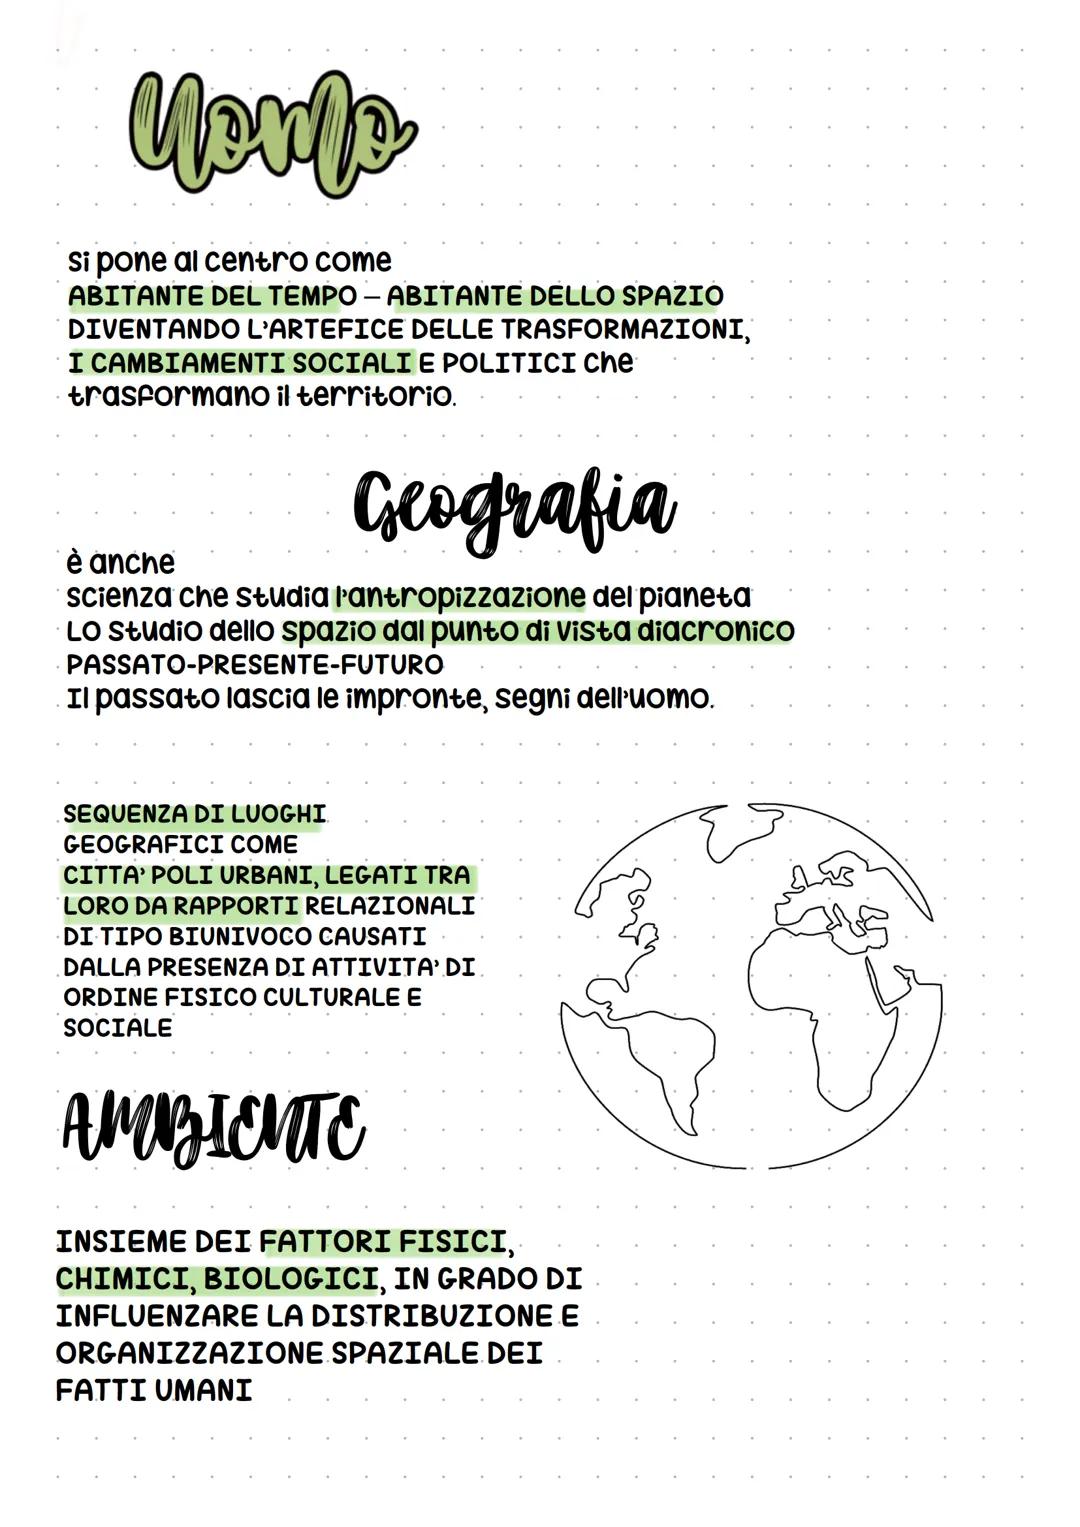 Uomo
si pone al centro come
ABITANTE DEL TEMPO – ABITANTE DELLO SPAZIO
DIVENTANDO L'ARTEFICE DELLE TRASFORMAZIONI,
I CAMBIAMENTI SOCIALI E POLITICI che
trasformano il territorio.
Geografia
è anche
scienza che studia l'antropizzazione del pianeta
Lo studio dello spazio dal punto di vista diacronico
PASSATO-PRESENTE-FUTURO
Il passato lascia le impronte, segni dell'uomo.
SEQUENZA DI LUOGHI
GEOGRAFICI COME
CITTA' POLI URBANI, LEGATI TRA
LORO DA RAPPORTI RELAZIONALI
DI TIPO BIUNIVOCO CAUSATI
DALLA PRESENZA DI ATTIVITA' DI
ORDINE FISICO CULTURALE E
SOCIALE
AMBIENTE
INSIEME DEI FATTORI FISICI,
CHIMICI, BIOLOGICI, IN GRADO DI
INFLUENZARE LA DISTRIBUZIONE E
ORGANIZZAZIONE SPAZIALE DEI
FATTI UMANI